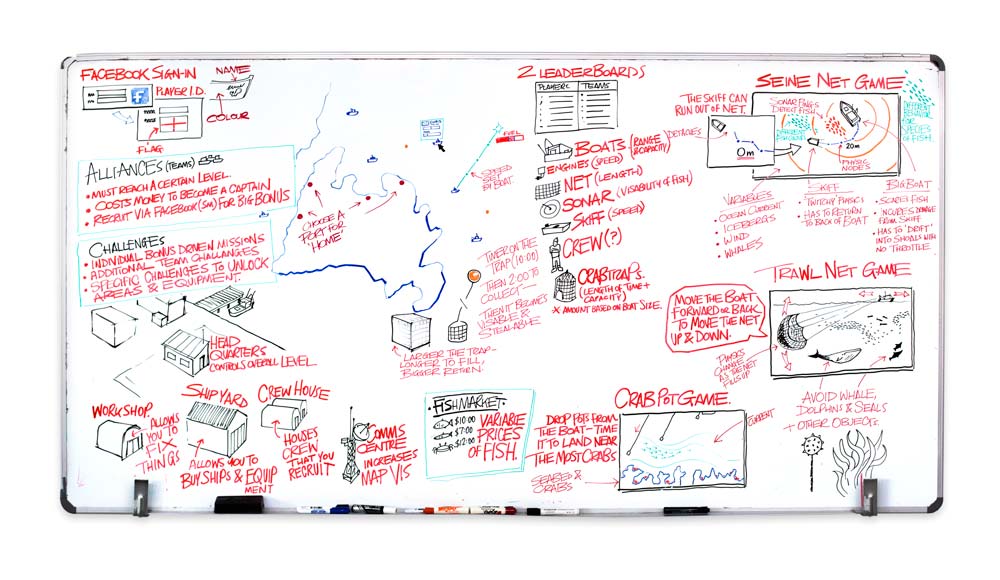 FACEBOOK SIGN-IN
PLAYER I.D.
f
NAME
COLOUR
FLAG
ALLIANCES (TEAMS)
• MUST REACH A CERTAIN LEVEL.
• COSTS MONEY TO BECOME A CAPTAIN
• RECRUIT VIA FACEBOOK (SM) FOR BIG BONUS
CHALLENGES
• INDIVIDUAL BONUS DRIVEN MISSIONS
• ADDITIONAL TEAM CHALLANGES
• SPECIFIC CHALLENGES TO UNLOCK
AREAS & EQUIPMENT.
HEAD
QUARTERS
CONTROLS OVERALL LEVEL.
WORKSHOP
ALLOWS
YOU TO
FIX
THINGS
SHIPYARD
ALLOWS YOU TO
BUY SHIPS & EQUIP
MENT
CREW HOUSE
HOUSES
CREW
THAT YOU
RECRUIT
COMMS
CENTRE
INCREASES
MAP VIS
CHOOSE A
PORT FOR
'HOME'
FUEL
SPEED
SET
BY BOAT.
TIMER ON THE
TRAP (10:00)
THEN 2:00 TO
COLLECT
THEN IT BECOMES
VISABLE &
STEALABLE
LARGER THE TRAP-
LONGER TO FILL,
BIGGER RETURN.
• FISHMARKET •
$10:00
$7:00
$12:00
VARIABLE
PRICES
OF FISH.
2 LEADERBOARDS
PLAYERS
TEAMS
BOATS (RANGE
& CAPACITY)
ENGINES (SPEED)
NET (LENGTH)
SONAR (VISABILITY OF FISH)
SKIFF (SPEED)
CREW (?)
CRABTRAPS.
(LENGTH OF TIME +
CAPACITY)
* AMOUNT BASED ON BOAT SIZE.
SEINE NET GAME
THE SKIFF CAN
RUN OUT OF NET.
DETACHES
0m
SONAR PINGS
DETECT FISH
20m
PHYSIC
NODES
DIFFERENT
BEHAVIOR
FOR
SPECIES
OF FISH.
VARIABLES
• OCEAN CURRENT
• ICEBERGS
• WIND
• WHALES
SKIFF
• TWITCHY PHYSICS
• HAS TO RETURN
TO BACK OF BOAT
BIG BOAT
• SCARES FISH
• INCURES DAMAGE
FROM SKIFF
• HAS TO 'DRIFT'
INTO SHOALS WITH
NO THROTTLE.
TRAWL NET GAME
MOVE THE BOAT
FORWARD OR BACK
TO MOVE THE NET
UP & DOWN.
PHYSICS
CHANGES
AS THE NET
FILLS UP
AVOID WHALE,
DOLPHINS & SEALS
+ OTHER OBJECTS.
CRAB POT GAME.
DROP POTS FROM
THE BOAT - TIME
IT TO LAND NEAR
THE MOST CRABS
SEABED &
CRABS
CURRENT